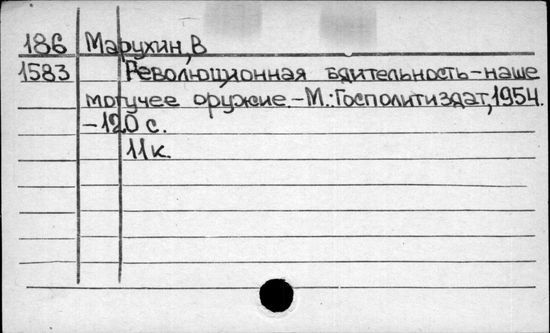 186 Марухин, В
1583 Революционная бдительность-наше
могучее оружие.-М.:Госполитиздат, 1954.
-120 с.
11к.